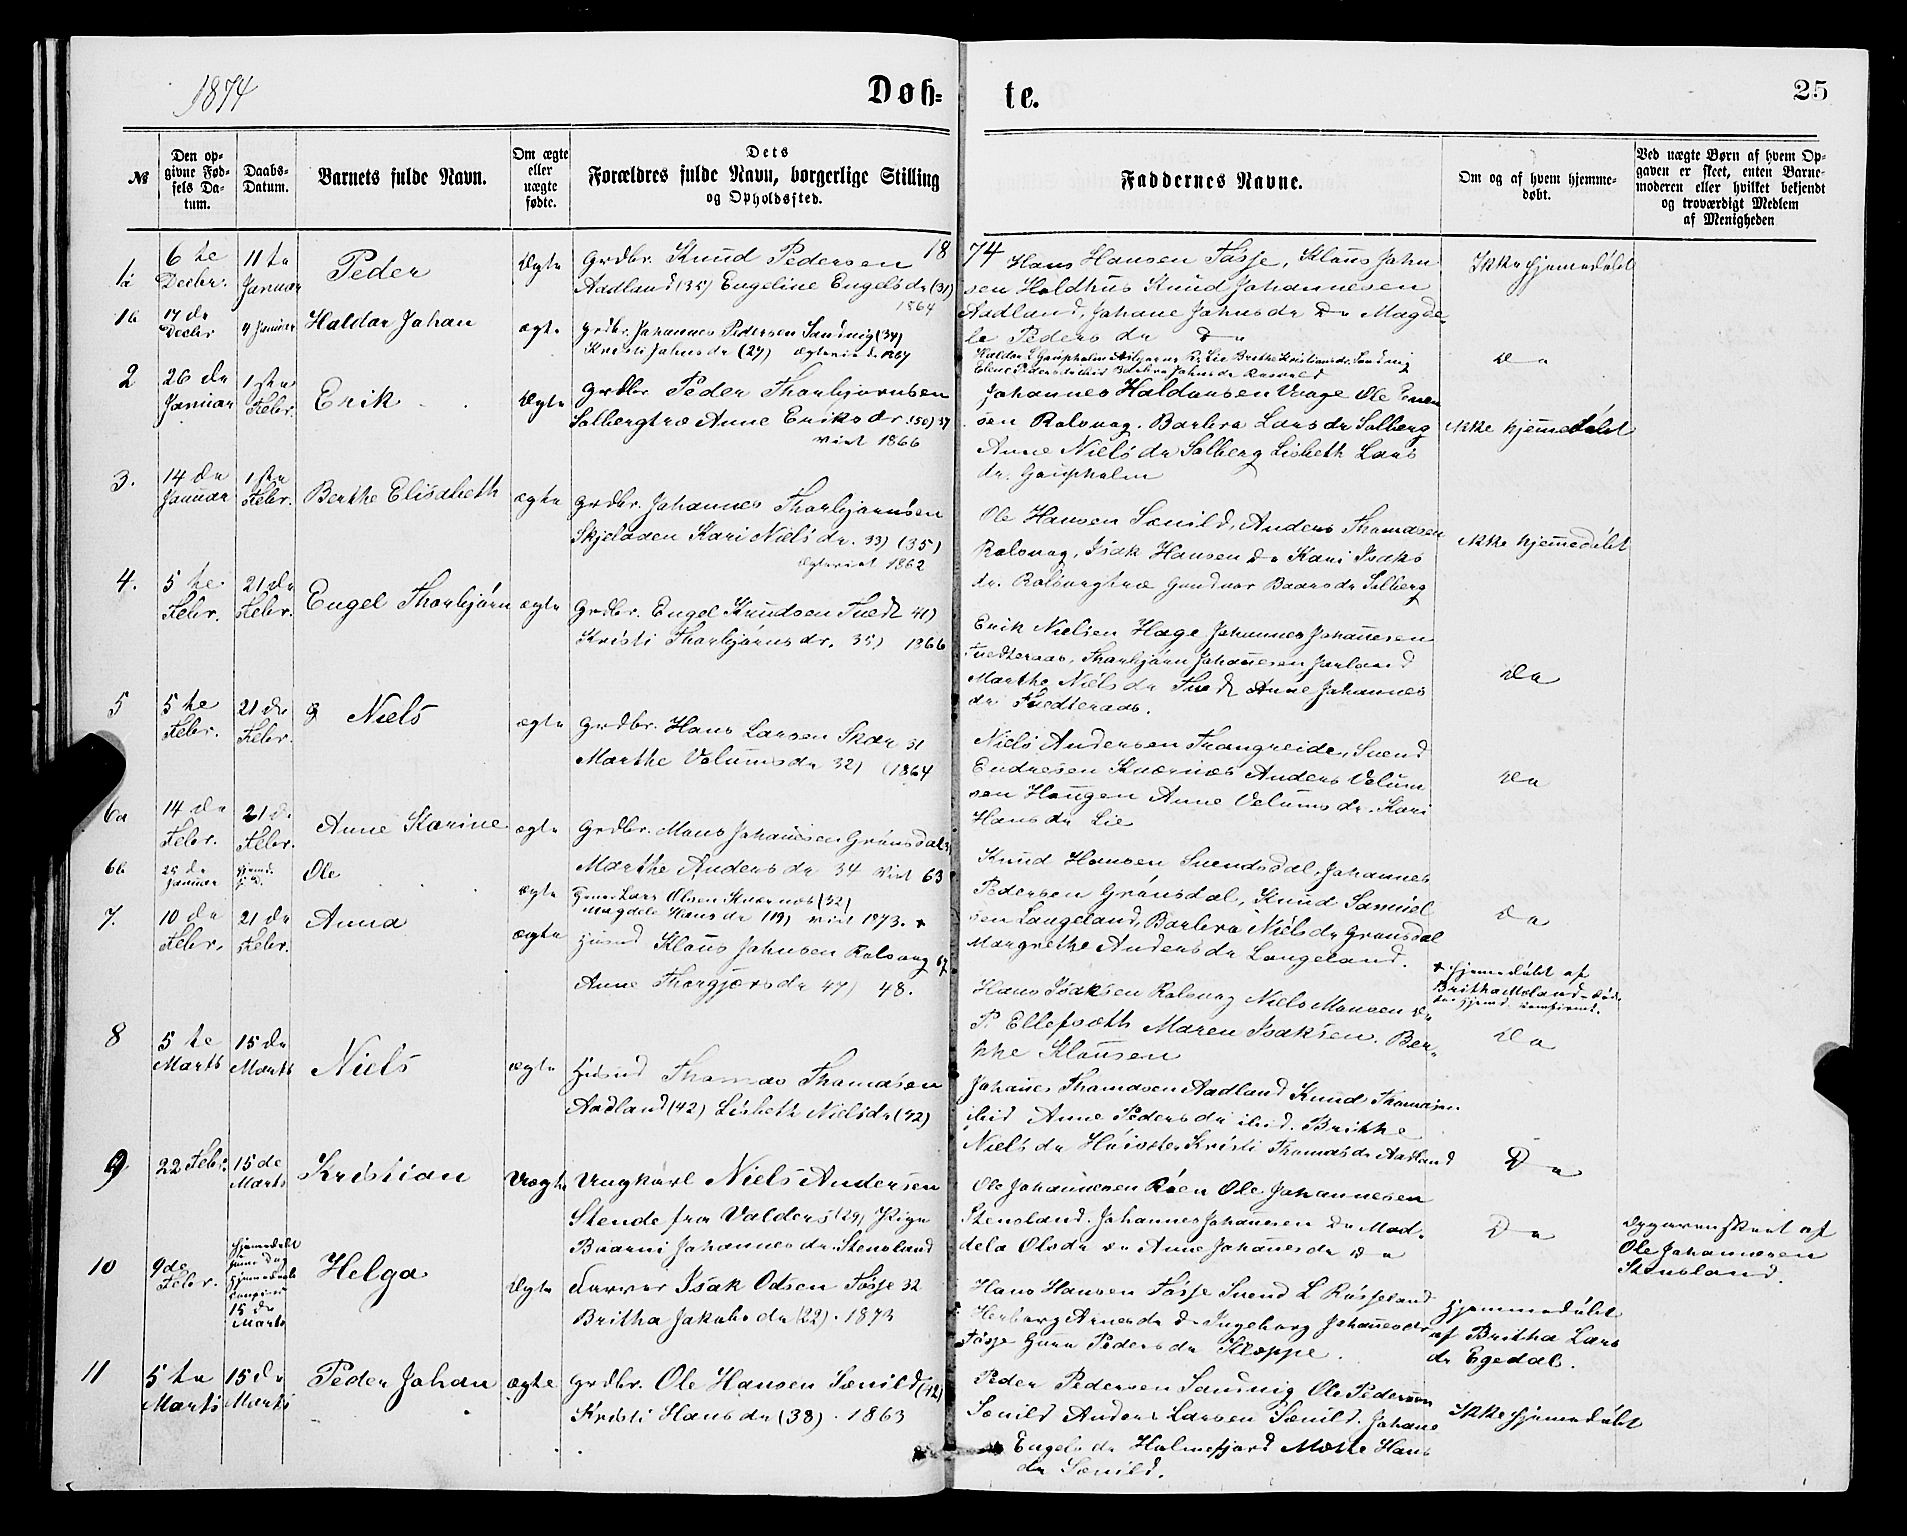 1874
Døb-
te.
25
№
Den opgivne Fødsels Datum.
Daabs-Datum.
Barnets fulde Navn.
Om ægte eller uægte fødte.
Dets Forældres fulde Navn, borgerlige Stilling og Opholdssted.
Faddernes Navne.
Om og af hvem hjemmedøbt.
Ved uægte Børn af hvem Opgaven er skeet, enten Barnemoderen eller hvilket bekjendt og troværdigt Medlem af Menigheden
1874
1a 6te Decbr. 11te Januar Peder Ægte Grdbr. Knud Pedersen
Aadland (35) Engeline Engelsdr (31)
1864
Hans Hansen Tøsje, Klaus John
sen Holdhus Knud Johannesen
Aadland, Johane Johnsdr Do Magde
le Pedersdr Do
Ikke hjemedøbt
1b 17de Decbr 4 Januar Haldor Johan ægte Grdbr. Johannes Pedersen Sandvig (34)
Kristi Johnsdr (27)
Do
2 26de Januar 1ste Febr. Erik Ægte Grdbr Peder Thorbjørnsen
Solbergtræ Anne Eriksdr 350) 37
viet 1866
Johannes Haldorsen Vaage Ole
sen Rolsvag. Barbra Larsdr Solberg
Anne Nielsdr Solberg Lisbeth Lars
dr. Gaupholm
ikke hjemedøbt
3. 14de Januar 1ste Febr. Berthe Elisabeth ægte Grdbr. Johannes Thorbjørnsen
Skjelaaen Kari Nielsdr. 33) (35)
Ægteviet 1862
Ole Hansen Sævild, Anders Thomasen
Rolsvag, Isak Hansen Do Kari Isaks
dr. Rolsvagtræ Gundvor Baarsdr Solberg
ikke hjemedøbt
4. 5te Febr. 21de Febr. Engel Thorbjørn ægte Grdbr. Engel Knudsen Tvedt 41)
Kristi Thorbjørnsdr. 35) 1866
Erik Nielsen Hage Johannes Johanesen
Tvedteraas, Thorbjørn Johanesen Jarland
Marthe Nielsdr Tvedt Anne Johannes
dr Tvedteraas.
Do
5 5te Febr. 21de Febr. Niels ægte Grdbr. Hans Larsen Skar 31
Marthe Velumsdr 32) (1864
Niels Andersen Trangreide, Svend
Endresen Knærnæs Anders Velum
sen Haugen Anne Velumsdr. Kari
Hansdr Lie
Do
6a 14de Febr. 21de Febr. Anne Karine ægte Grdbr. Mons Johannesen Grønsdal
Marthe Andersdr 34 viet 63
Knud Hansen Svendsdal, Johannes
Pedersen Grønsdal, Knud Samuel
sen Langeland, Barbra Nielsdr Grønsdal
Margrethe Andersdr Langeland.
Do
6b 25de Januar Ole ægte Lars Olsen Knærnæs (32)
Magdele Hansdr (19) viet 1873.
7. 10de Febr. 21de Febr. Anna ægte Husmd Klaus Johnsen Rolsvag 67
Anne Thorgjersdr 47) 48.
Hans Isaksen Rolsvag Niels Monsen Do
P. Ellefsæth Maren Isaksen. Ber-
the Klausen
Hjemedøbt af
Britha
Do
8 5te Marts 15de Marts Niels ægte Husmd Thomas Thomasen
Aadland (42) Lisbeth Nielsdr (42)
Johanes Thomasen Aadland Knud Thomasen
ibid Anne Pedersdr ibid. Brithe
Nielsdr Kristi Thomasdr Aadland
Do
9 22 Febr. 15de Marts Kristian Uægte Ungkarl Niels Andersen
Stende fra Valders (29) Pige
Baarni Johannesdr. Stensland
Ole Johannesen Røen Ole Johannesen
Stensland. Johannes Johanesen Do Mad-
dela Olsdr Do Anne Johanesdr Do
Do
Opgaven skeet af
Ole Johannesen
Stensland.
10 9de Febr. Hjemedøbt
15de Marts Helga Ægte Isak Odsen Tøsje 32
Britha Jakobsdr (22). 1873
Hans Hansen Tøsje Svend L Røsseland
Herborg Arnesdr Do Ingeborg Johanesdr
Tøsje Guro Pedersdr Kleppe.
Hjemmedøbt
af Britha Lars
dr Egedal.
11 5te Marts 15de Marts Peder Johan ægte Grdbr. Ole Hansen Sævild (42)
Kristi Hansdr (38). 1863
Peder Pedersen Sandvig Ole Pedersen
Sævild Anders Larsen Sævild. Johane
Engelsdr Holmefjord Matte Hans
dr Sævild.
Ikke hjemedøbt